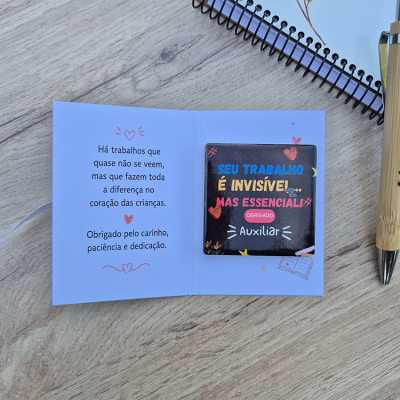 Há trabalhos que
quase não se veem,
mas que fazem toda
a diferença no
coração das crianças.
Obrigado pelo carinho,
paciência e dedicação.
SEU TRABALHO
É INVISÍVEL...
MAS ESSENCIAL!
OBRIGADO
Auxiliar